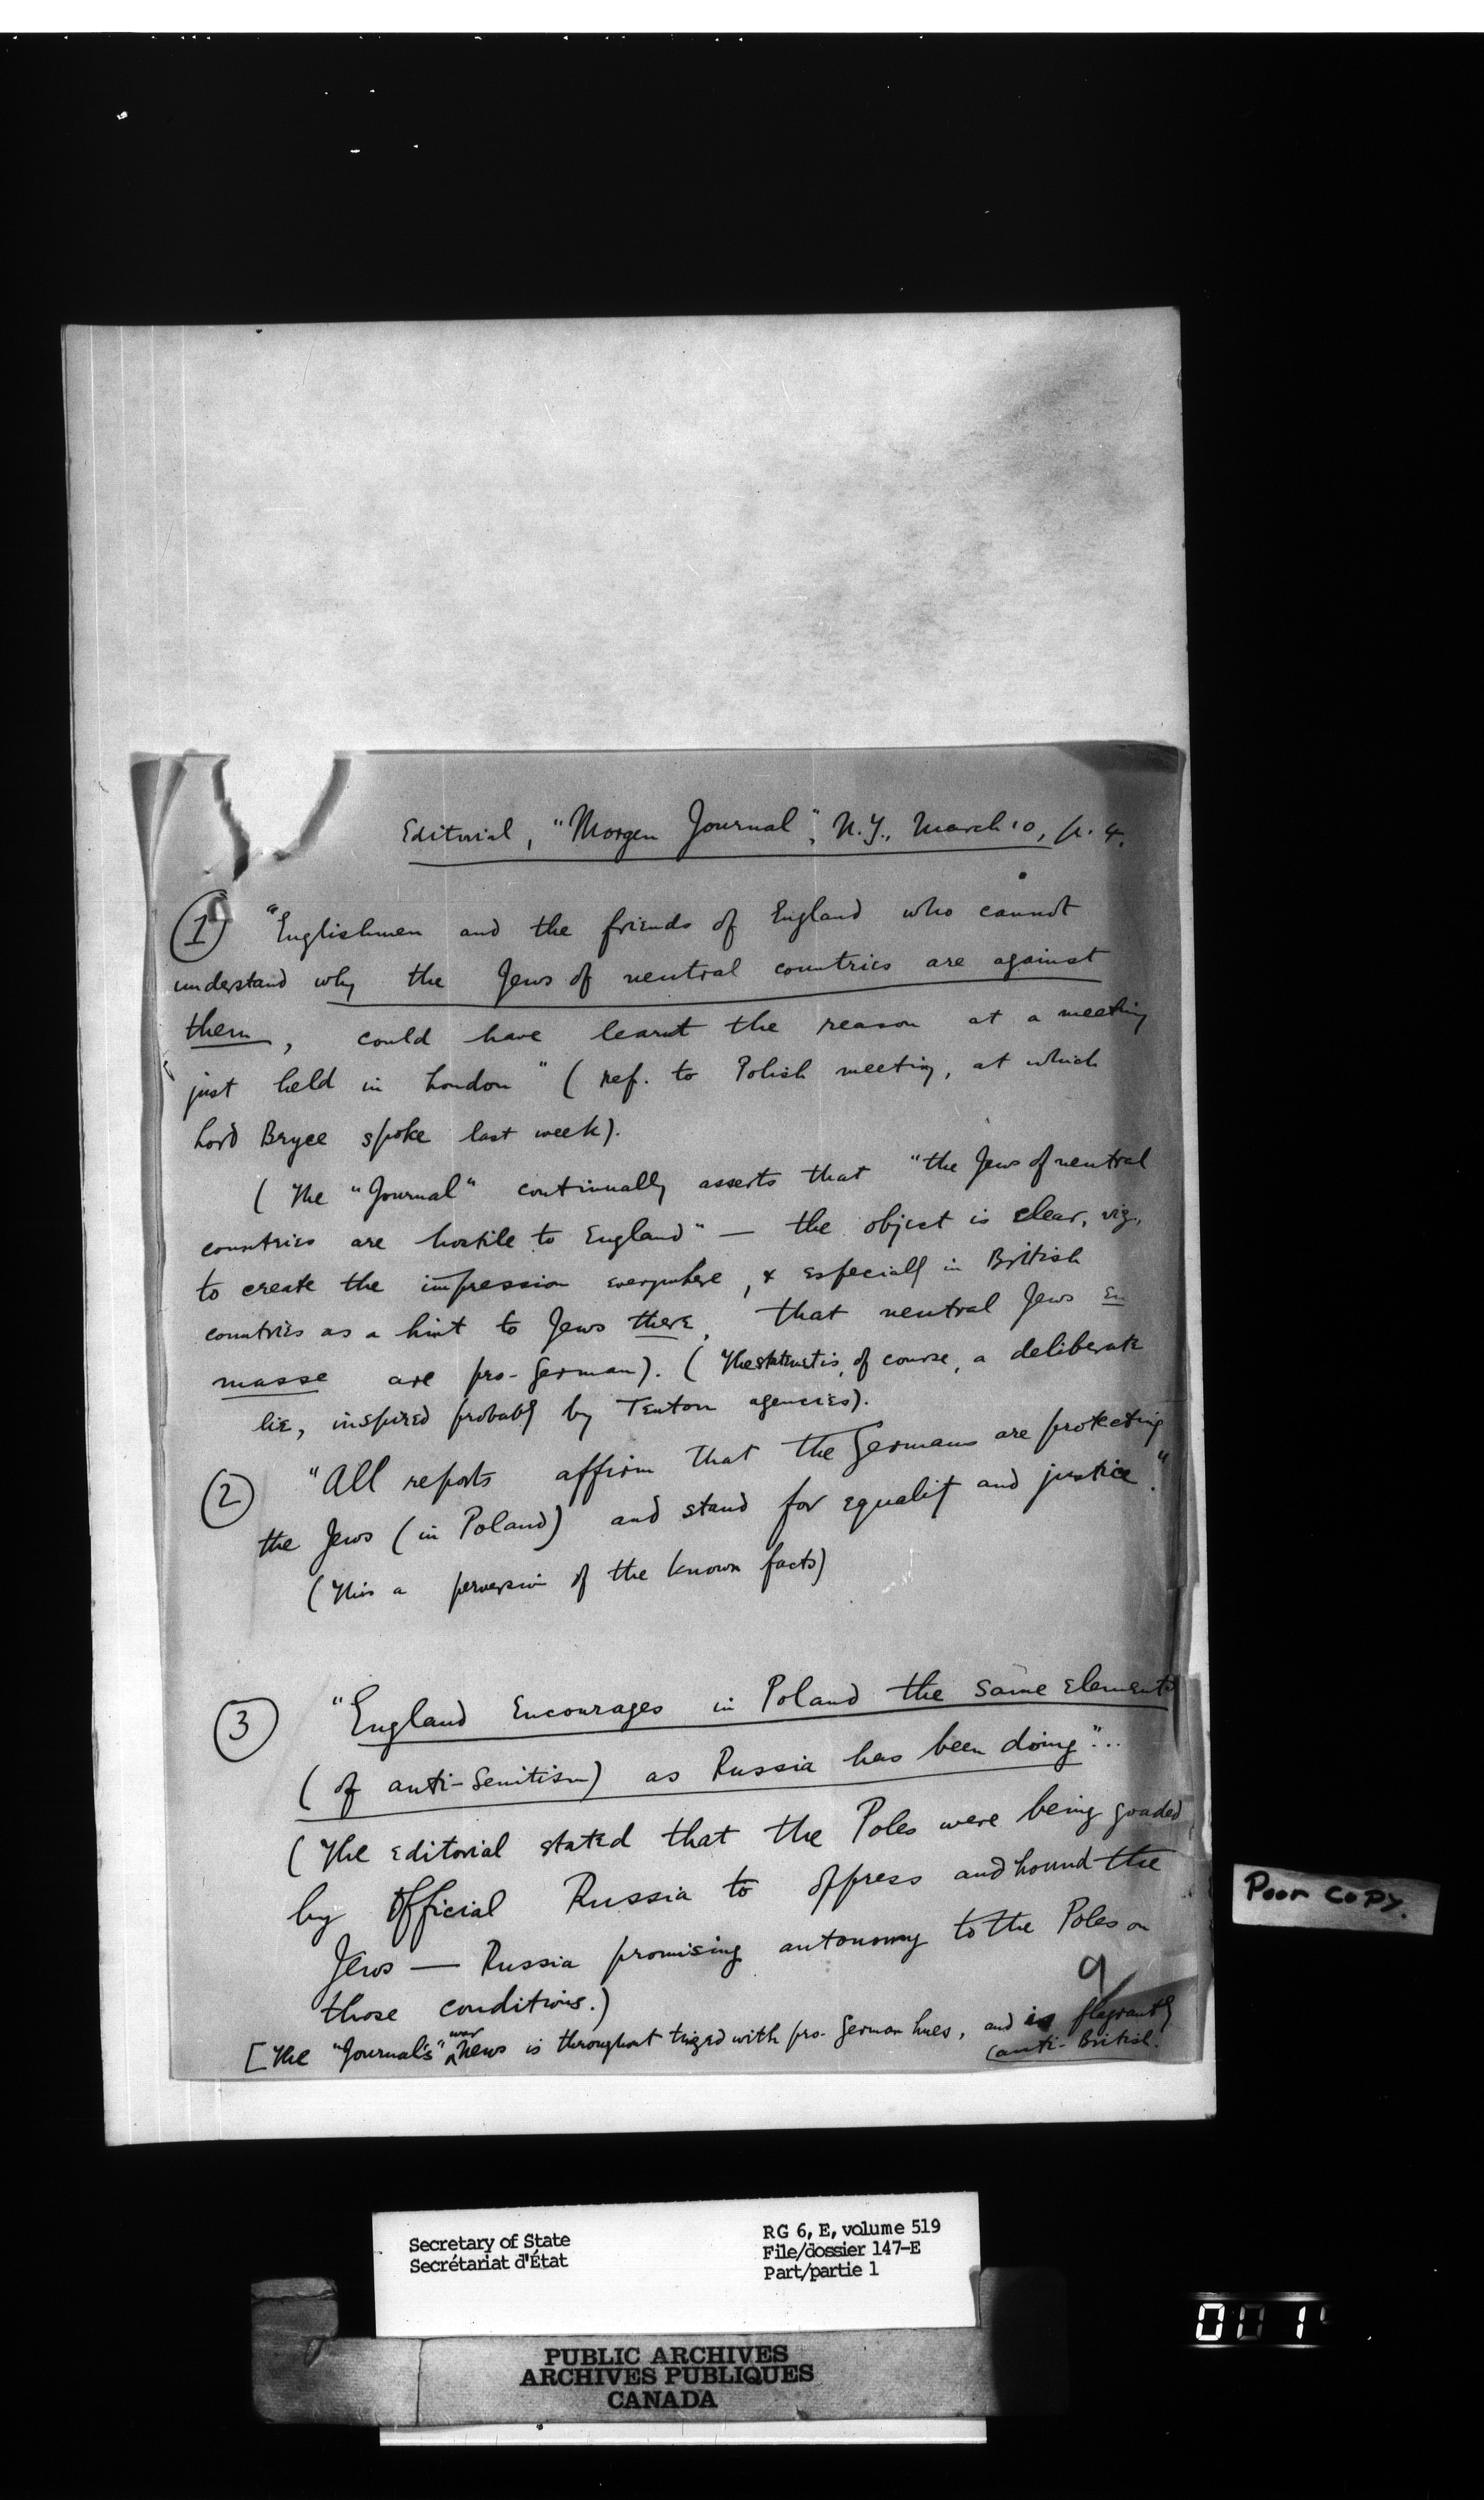 Editorial, "Morgen Journal", N.Y., March 10, p. 4.
① "Englishmen and the friends of England who cannot
understand why the Jews of neutral countries are against
them, could have learnt the reason at a meeting
just held in London" (ref. to Polish meeting, at which
Lord Bryce spoke last week).
(The "Journal" continually asserts that "the Jews of neutral
countries are hostile to England" — the object is clear, viz.
to create the impression everywhere, & especially in British
countries as a hint to Jews there, that neutral Jews en
masse are pro-German). (The statmt is, of course, a deliberate
lie, inspired probably by Teuton agencies).
② "All reports affirm that the Germans are protecting
the Jews (in Poland) and stand for equality and justice."
(This a perversion of the known facts)
③ "England Encourages in Poland the same elements
(of anti-Semitism) as Russia has been doing"...
(The editorial stated that the Poles were being goaded
by official Russia to oppress and hound the
Jews — Russia promising autonomy to the Poles on
those conditions.)
9
[The "Journal's" war news is throughout tinged with pro-German hues, and is flagrantly
anti-British.
Poor Copy.
Secretary of State
Secrétariat d'État
RG 6, E, volume 519
File/dossier 147-E
Part/partie 1
PUBLIC ARCHIVES
ARCHIVES PUBLIQUES
CANADA
001